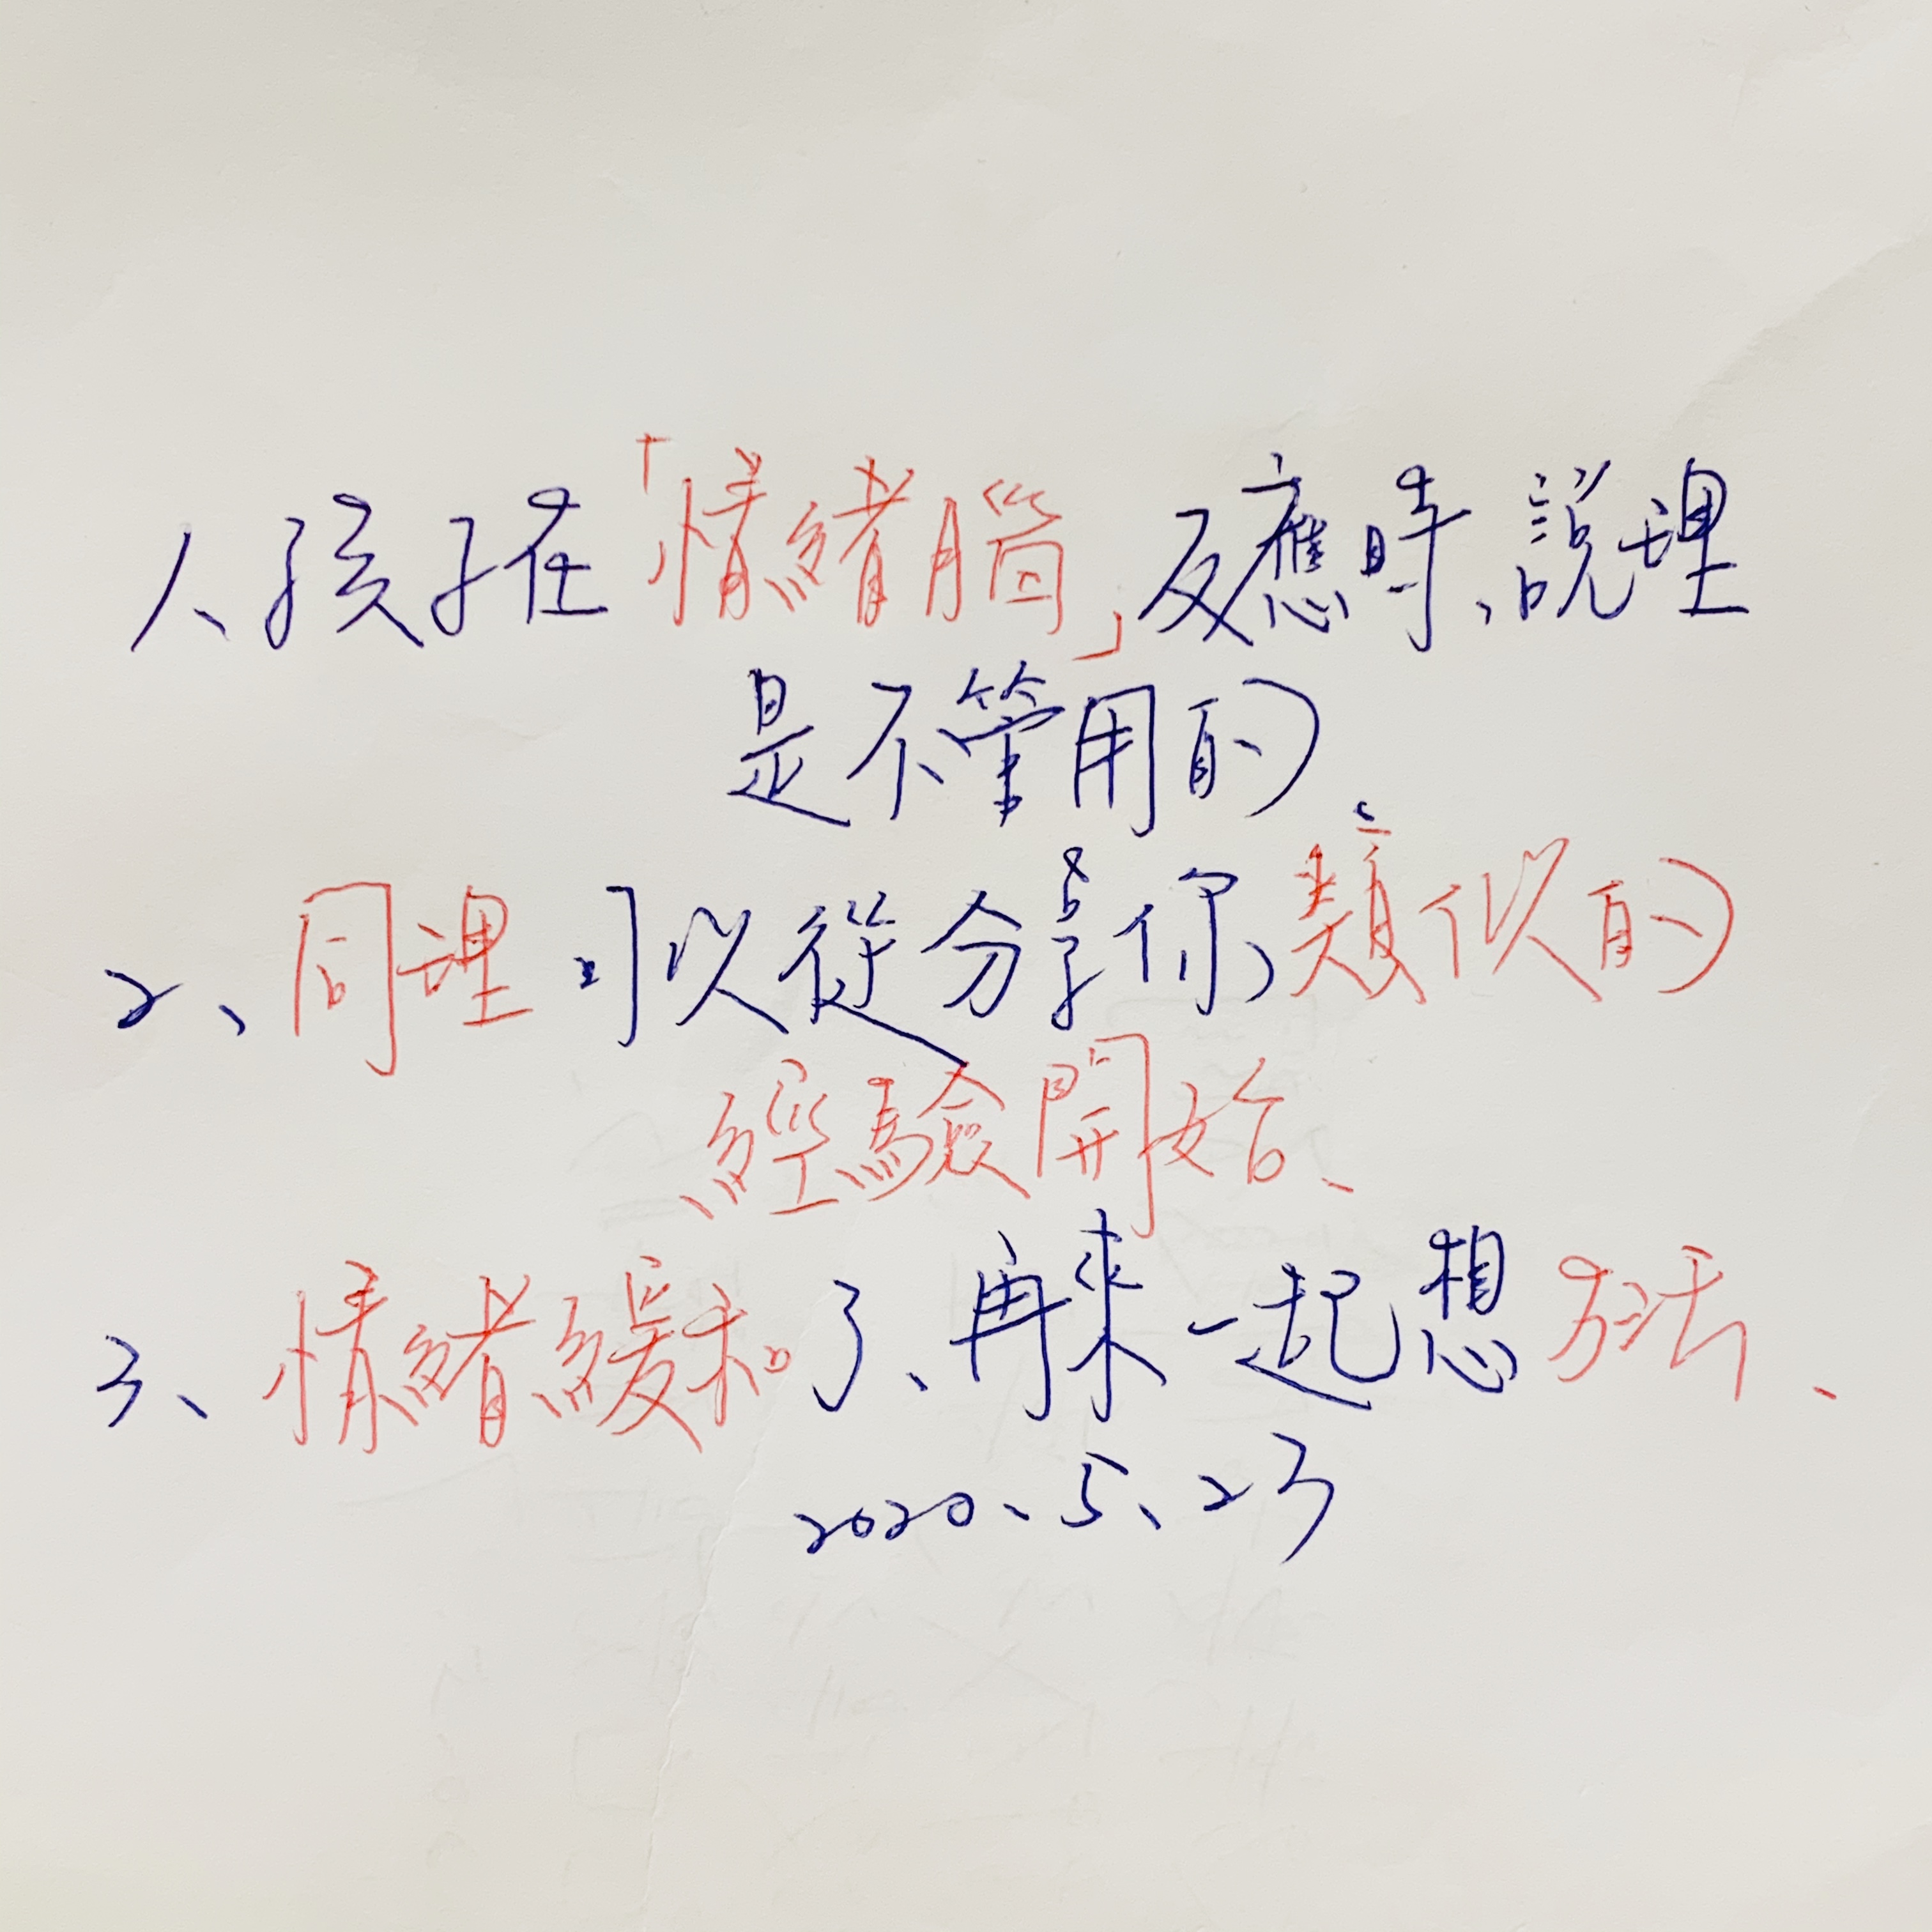 1、孩子在「情緒腦」反應時、說理
是不管用的
2、同理可以從分享你類似的
經驗開始、
3、情緒緩和了、再來一起想方法、
2020、5、23